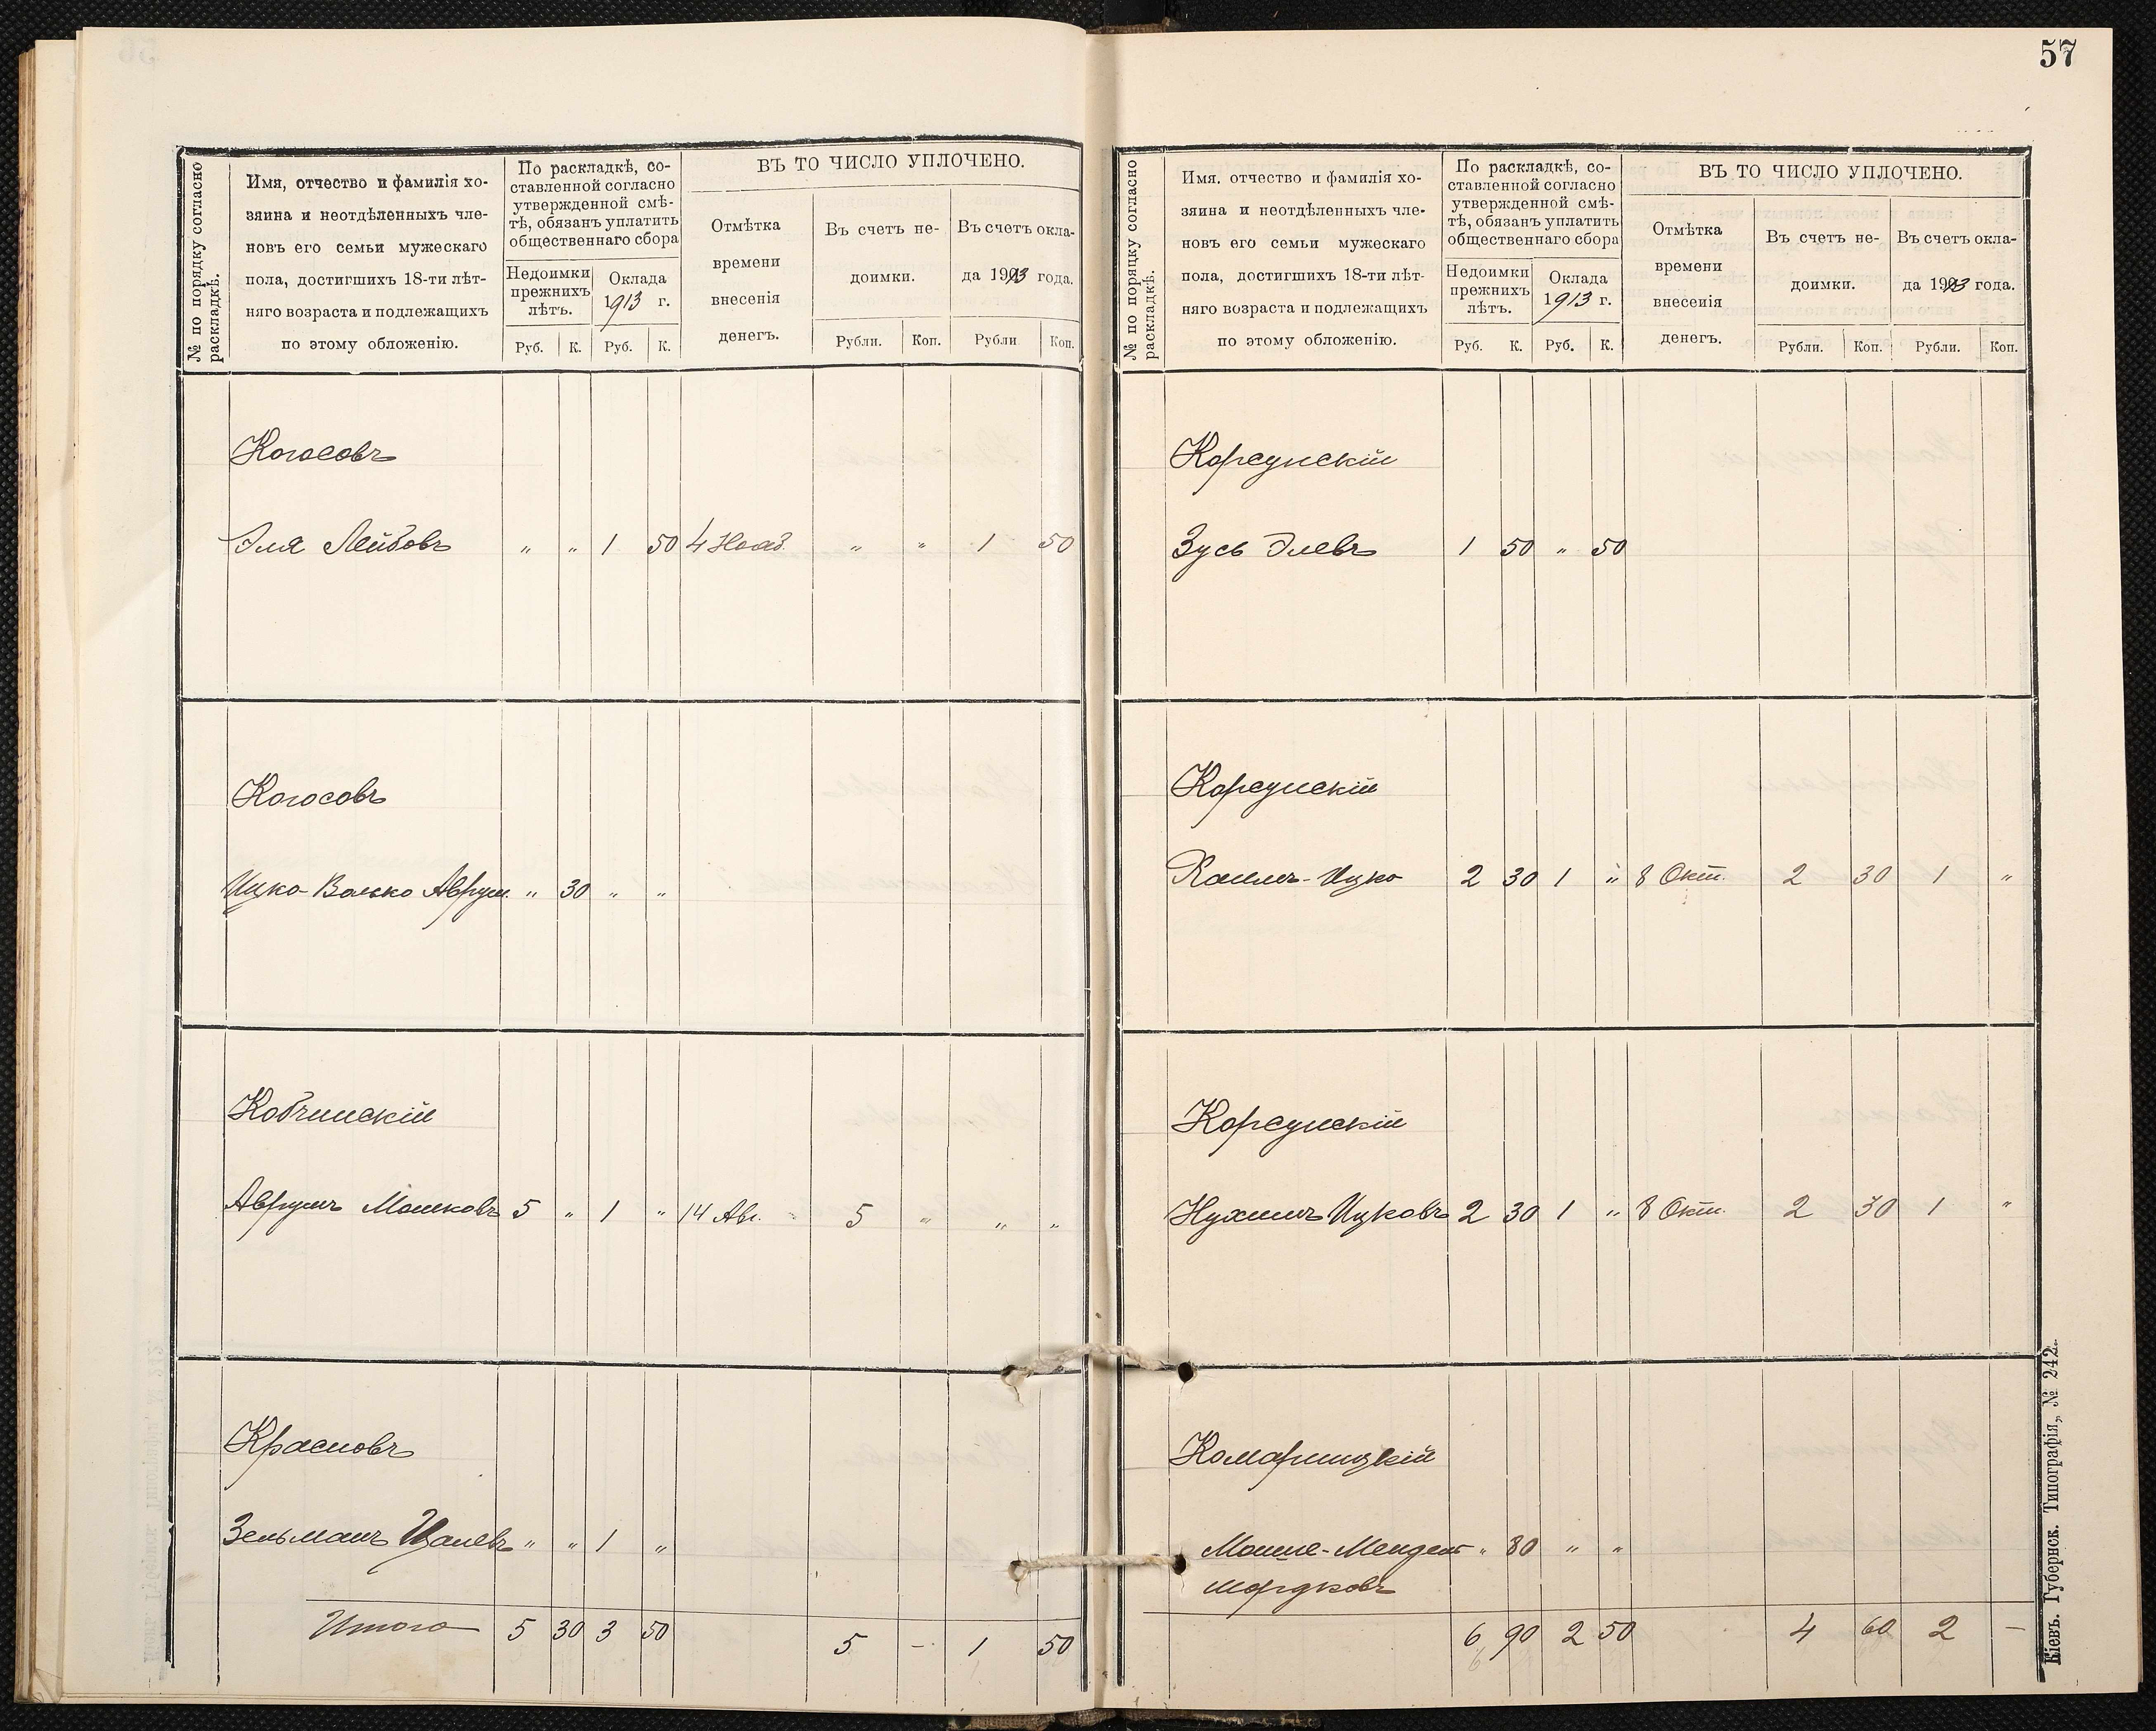 57
№ по порядку согласно
раскладкѣ.
Имя, отчество и фамилія хо-
зяина и неотдѣленныхъ чле-
новъ его семьи мужескаго
пола, достигшихъ 18-ти лѣт-
няго возраста и подлежащихъ
по этому обложенію.
По раскладкѣ, со-
ставленной согласно
утвержденной смѣ-
тѣ, обязанъ уплатить
общественнаго сбора
Недоимки
прежнихъ
лѣтъ.
Оклада
1913 г.
Руб. К. Руб. К.
ВЪ ТО ЧИСЛО УПЛОЧЕНО.
Отмѣтка
времени
внесенія
денегъ.
Въ счетъ не-
доимки.
Въ счетъ окла-
да 1913 года.
Рубли. Коп. Рубли Коп.
Когосовъ
Эля Лейбовъ " " 1 50 4 Нояб. " " 1 50
Когосовъ
Ицко-Волько Аврум. " 30 " "
Кобчинскій
Аврумъ Мошковъ 5 " 1 " 14 Авг. 5 " " "
Красновъ
Зельманъ " " 1 "
Итого 5 30 3 50 5 - 1 50
№ по порядку согласно
раскладкѣ.
Имя. отчество и фамилія хо-
зяина и неотдѣленныхъ чле-
новъ его семьи мужескаго
пола, достигшихъ 18-ти лѣт-
няго возраста и подлежащихъ
по этому обложенію.
По раскладкѣ, со-
ставленной согласно
утвержденной смѣ-
тѣ, обязанъ уплатить
общественнаго сбора
Недоимки
прежнихъ
лѣтъ.
Оклада
1913 г.
Руб. К. Руб. К.
ВЪ ТО ЧИСЛО УПЛОЧЕНО.
Отмѣтка
времени
внесенія
денегъ.
Въ счетъ не-
доимки.
Въ счетъ окла-
да 1913 года.
Рубли. Коп. Рубли. Коп.
Корсунскій
Зусь Элевъ 1 50 " 50
Корсунскій
Хаимъ-Ицко 2 30 1 " 8 Окт. 2 30 1 "
Корсунскій
Нухимъ Ицковъ 2 30 1 " 8 Окт. 2 30 1 "
Комарницкій
Мошко-Мендель " 80 " "
Мордковъ
6 90 2 50 4 60 2 —
Кіевъ. Губернск. Типографія,, № 242.